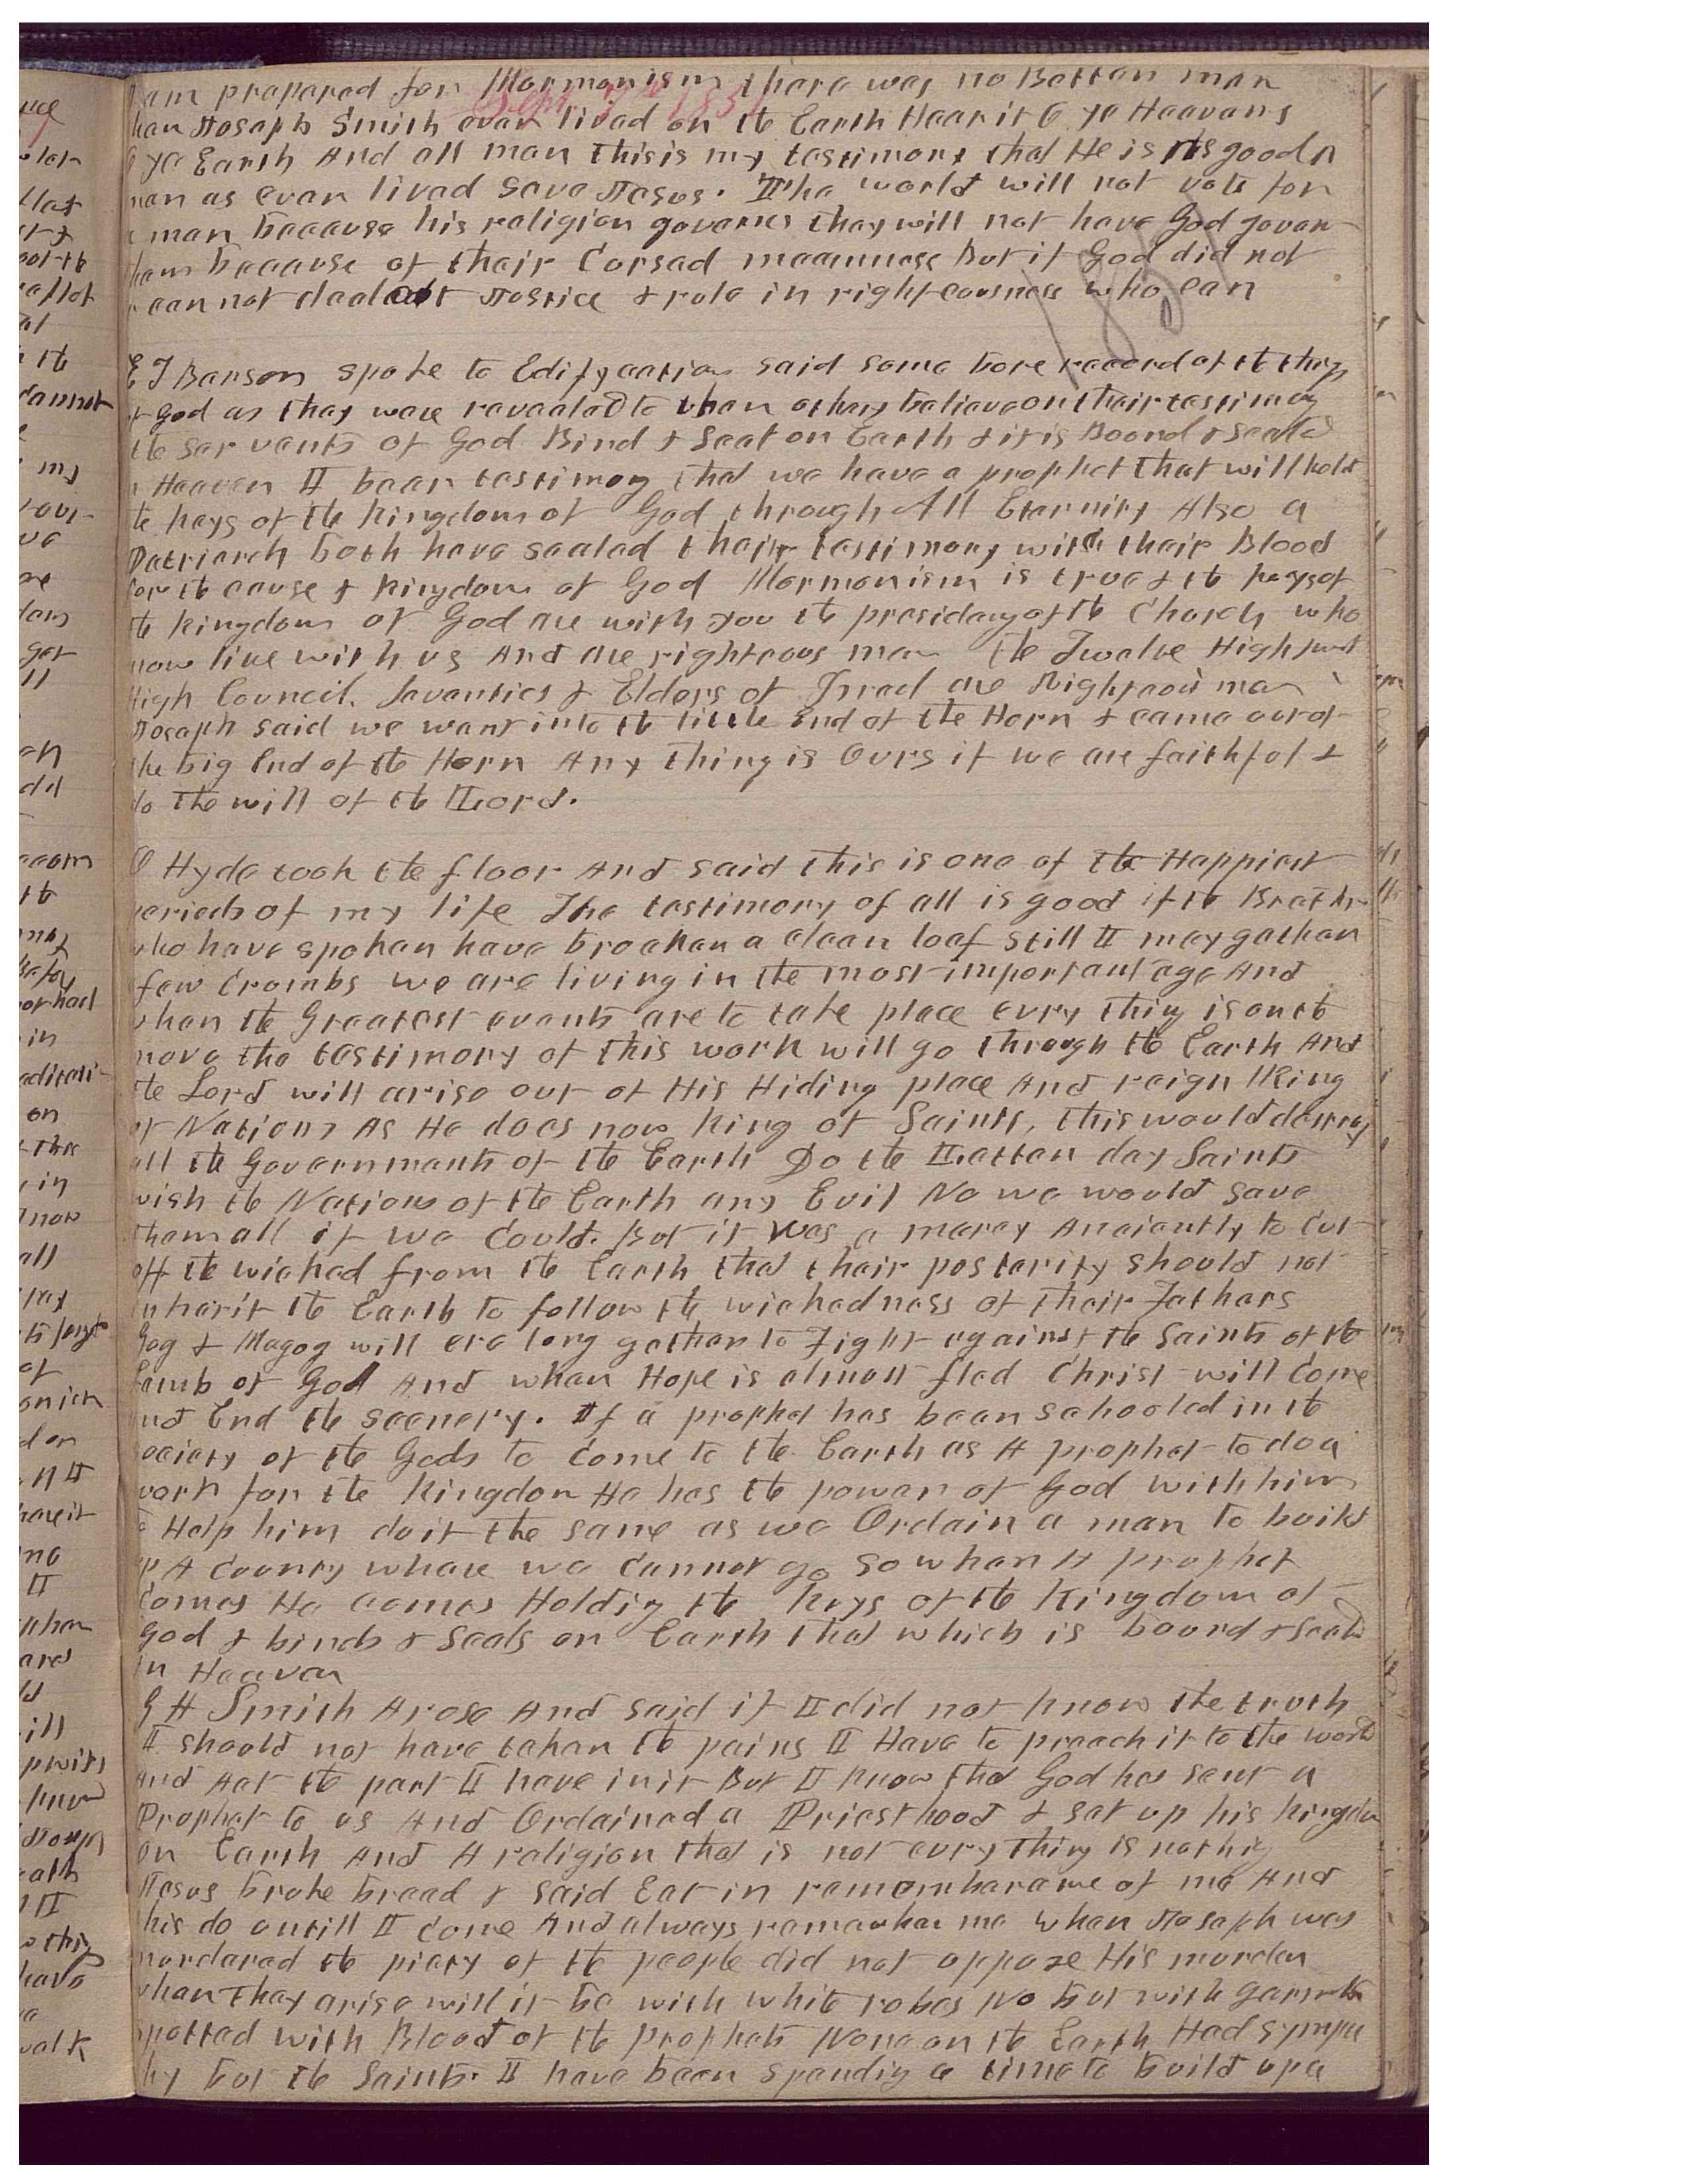 am prepared for Mormonism there was no Better man
than Joseph Smith ever lived on the Earth Hear it O ye Heavens
O ye Earth And all men This is my testimony that He is as good a
man as ever lived save Jesus. The world will not vote for
a man because his religion governs they will not have God govern
them because of their Corsed meanness But if God did not
cannot deal out Justice & rule in righteousness who can
Sept 1851
1851
E T Benson spoke to Edifycation said some bore record of the things
of God as they were revealed to them others believe on their testimony
the servants of God Bind & Seal on Earth & it is Bound & sealed
in Heaven I bear testimony that we have a prophet that will hold
the keys of the Kingdom of God through All Eternity Also a
Patriarch both have sealed their testimony with their Blood
for the cause & Kingdom of God Mormonism is true & the keys of
the Kingdom of God are with you the presidency of the Church who
now live with us And are righteous men the Twelve High priest
High Council, Seventies & Elders of Israel are Righteous men
Joseph said we went into the little End of the Horn & came out of
the big End of the Horn Any thing is Ours if we are faithful &
do the will of the Lord.
O Hyde took the floor And said this is one of the Happiest
periods of my life The testimony of all is good if the Brethr
who have spoken have broaken a clean loaf still I may gather
few Crombs we are living in the most important age And
when the Greatest events are to take place evry thing is on the
move the testimony of this work will go through the Earth And
the Lord will arise out of His Hiding place And reign King
of Nations As He does now King of Saints, this would destroy
all the Governments of the Earth Do the Latter day Saints
wish the Nations of the Earth any Evil No we would save
them all if we Could. But it was a mercy Anciently to Cut
off the wicked from the Earth that their posterity should not
inherit the Earth to follow the wickedness of their Fathers
Gog & Magog will ere long gather to Fight against the Saints of the
Lamb of God And when Hope is almost fled Christ will Come
and End the scenery. If a prophet has been schooled in the
society of the Gods to Come to the Earth as A prophet to do a
work for the Kingdom He has the power of God with him
to Help him do it the same as we Ordain a man to build
up A Country whare we Cannot go so when A prophet
Comes He comes Holding the keys of the Kingdom of
God & binds & Seals on Earth that which is bound & seald
in Heaven
G A Smith Arose And said if I did not know the truth
I should not have taken the pains I Have to preach it to the world
And Act the part I have in it But I know that God has sent a
Prophet to us And Ordained a Priesthood & set up his kingdom
on Earth And A religion that is not evry thing is nothing
Jesus broke bread & said Eat in rememberance of me And
this do untill I come And always remember me when Joseph was
murdered the piety of the people did not oppose His murder
when they arise will it be with white robes No but with garments
spotted with Blood of the prophets None on the Earth Had sympa
thy but the Saints. I have been spending a time to build up a